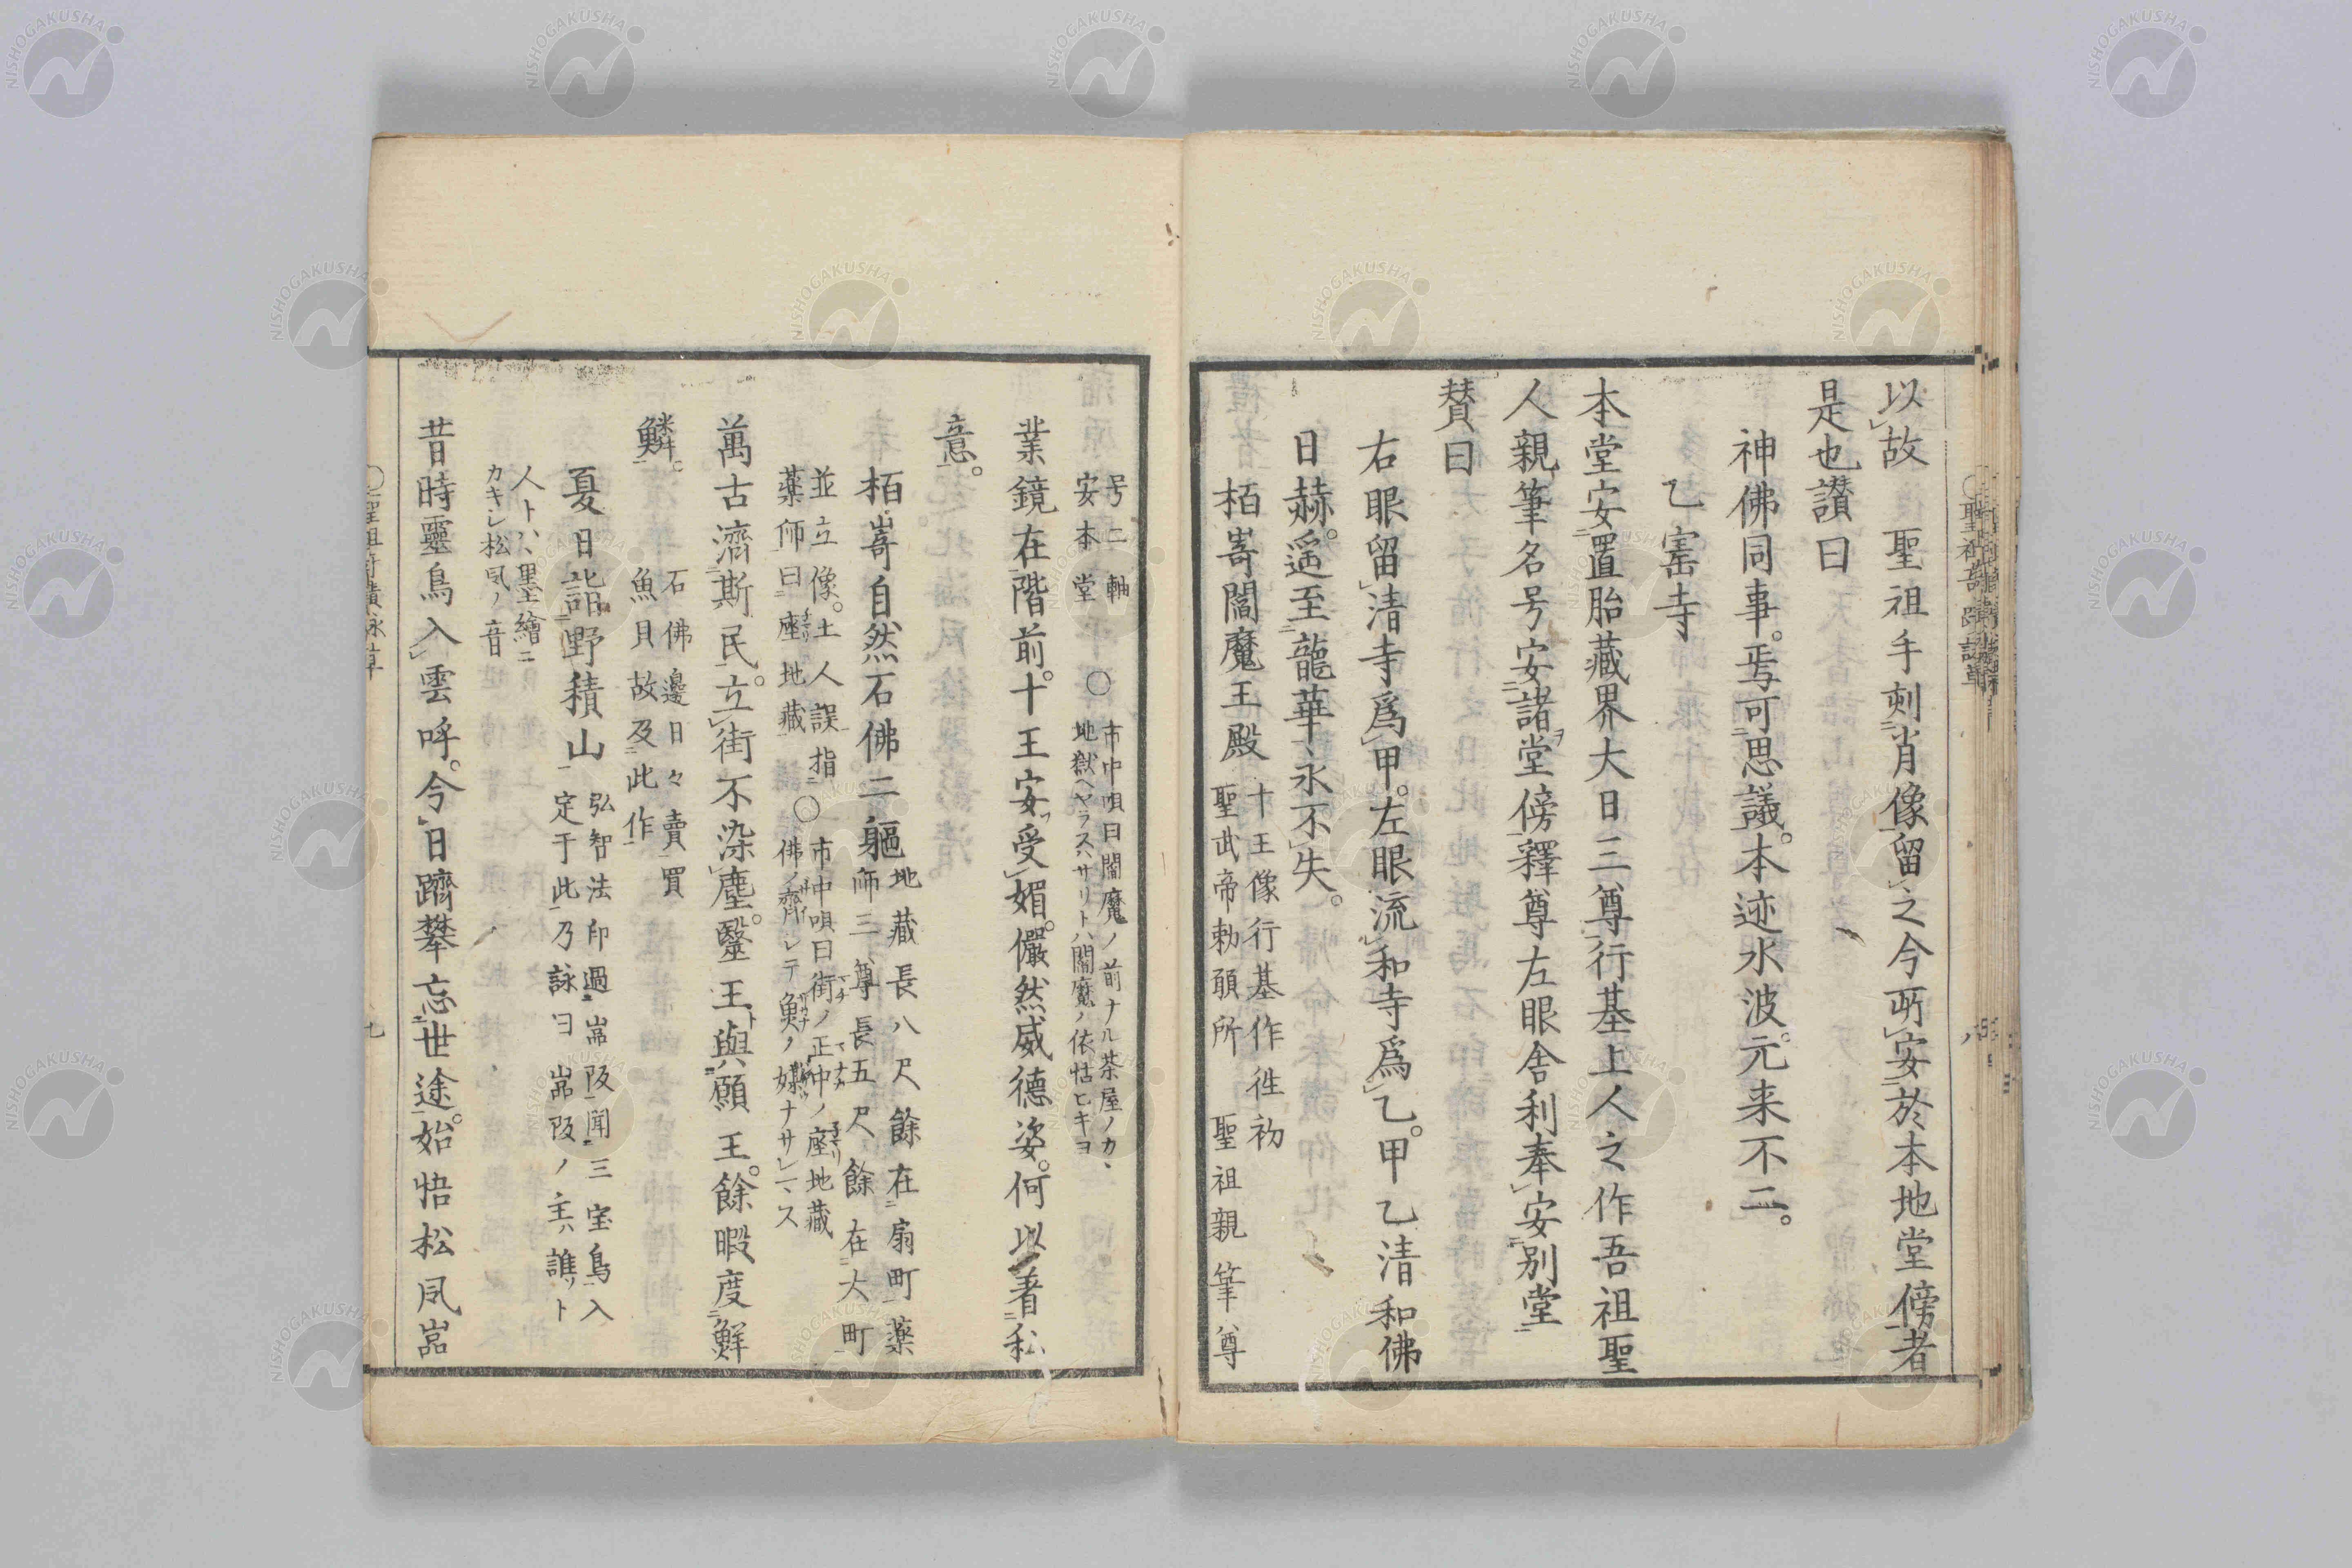 以故　聖祖手刻肖像留之今所安於本地堂傍者
是也讃曰
神佛同事。焉可思議。本迹水波。元来不二。
乙寶寺
本堂安置胎藏界大日三尊行基上人之作吾祖聖
人親筆名号安諸堂傍釋尊左眼舎利奉安別堂
賛曰
右眼留清寺爲甲。左眼流和寺爲乙。甲乙清和佛
日赫。遥至龍華永不失。
栢嵜閻魔王殿
十王像行基作徃初
聖武帝勅願所　聖祖親筆尊
号二軸
安本堂
○
市中唄曰閻魔ノ前ナル茶屋ノカヽ
地獄ヘヤラスハサリトハ閻魔ノ依怙ヒキヨ
業鏡在階前。十王安受媚。儼然威德姿。何以着私
意。
栢嵜自然石佛二軀
地藏長八尺餘在扇町薬
師三尊長五尺餘在大町
並立像。土人誤指
薬師曰座地藏
○
市中唄曰街ノ正中ノ座地藏
佛ノ齊シテ魚ノ媒ナサレマス
萬古濟斯民。立街不染塵。毉王與願王。餘暇度鮮
鱗。
石佛邊日々賣買
魚貝故及此作
夏日詣野積山
弘智法印過嵓阪聞三宝鳥入
定于此乃詠曰嵓阪ノ主ハ誰ソト
人トハヽ墨繪ニ
カキシ松凨ノ音
昔時靈鳥入雲呼。今日躋攀忘世途。始悟松凨嵓